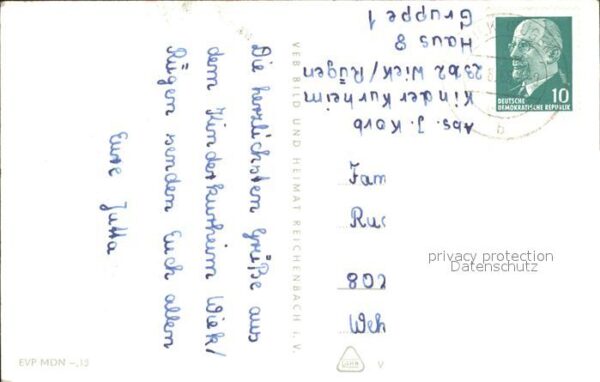 Die herzlichsten Grüße aus
dem Kinderkurheim Wiek/
Rügen senden Euch allen
Eure Jutta
VEB BILD UND HEIMAT REICHENBACH i. V.
Abs. J. Korb
Kinderkurheim
23b2 Wiek/Rügen
Haus 8
Gruppe 1
10
DEUTSCHE
DEMOKRATISCHE REPUBLIK
b
Fam
Ruc
802
Weh
privacy protection
Datenschutz
EVP MDN -,15
V